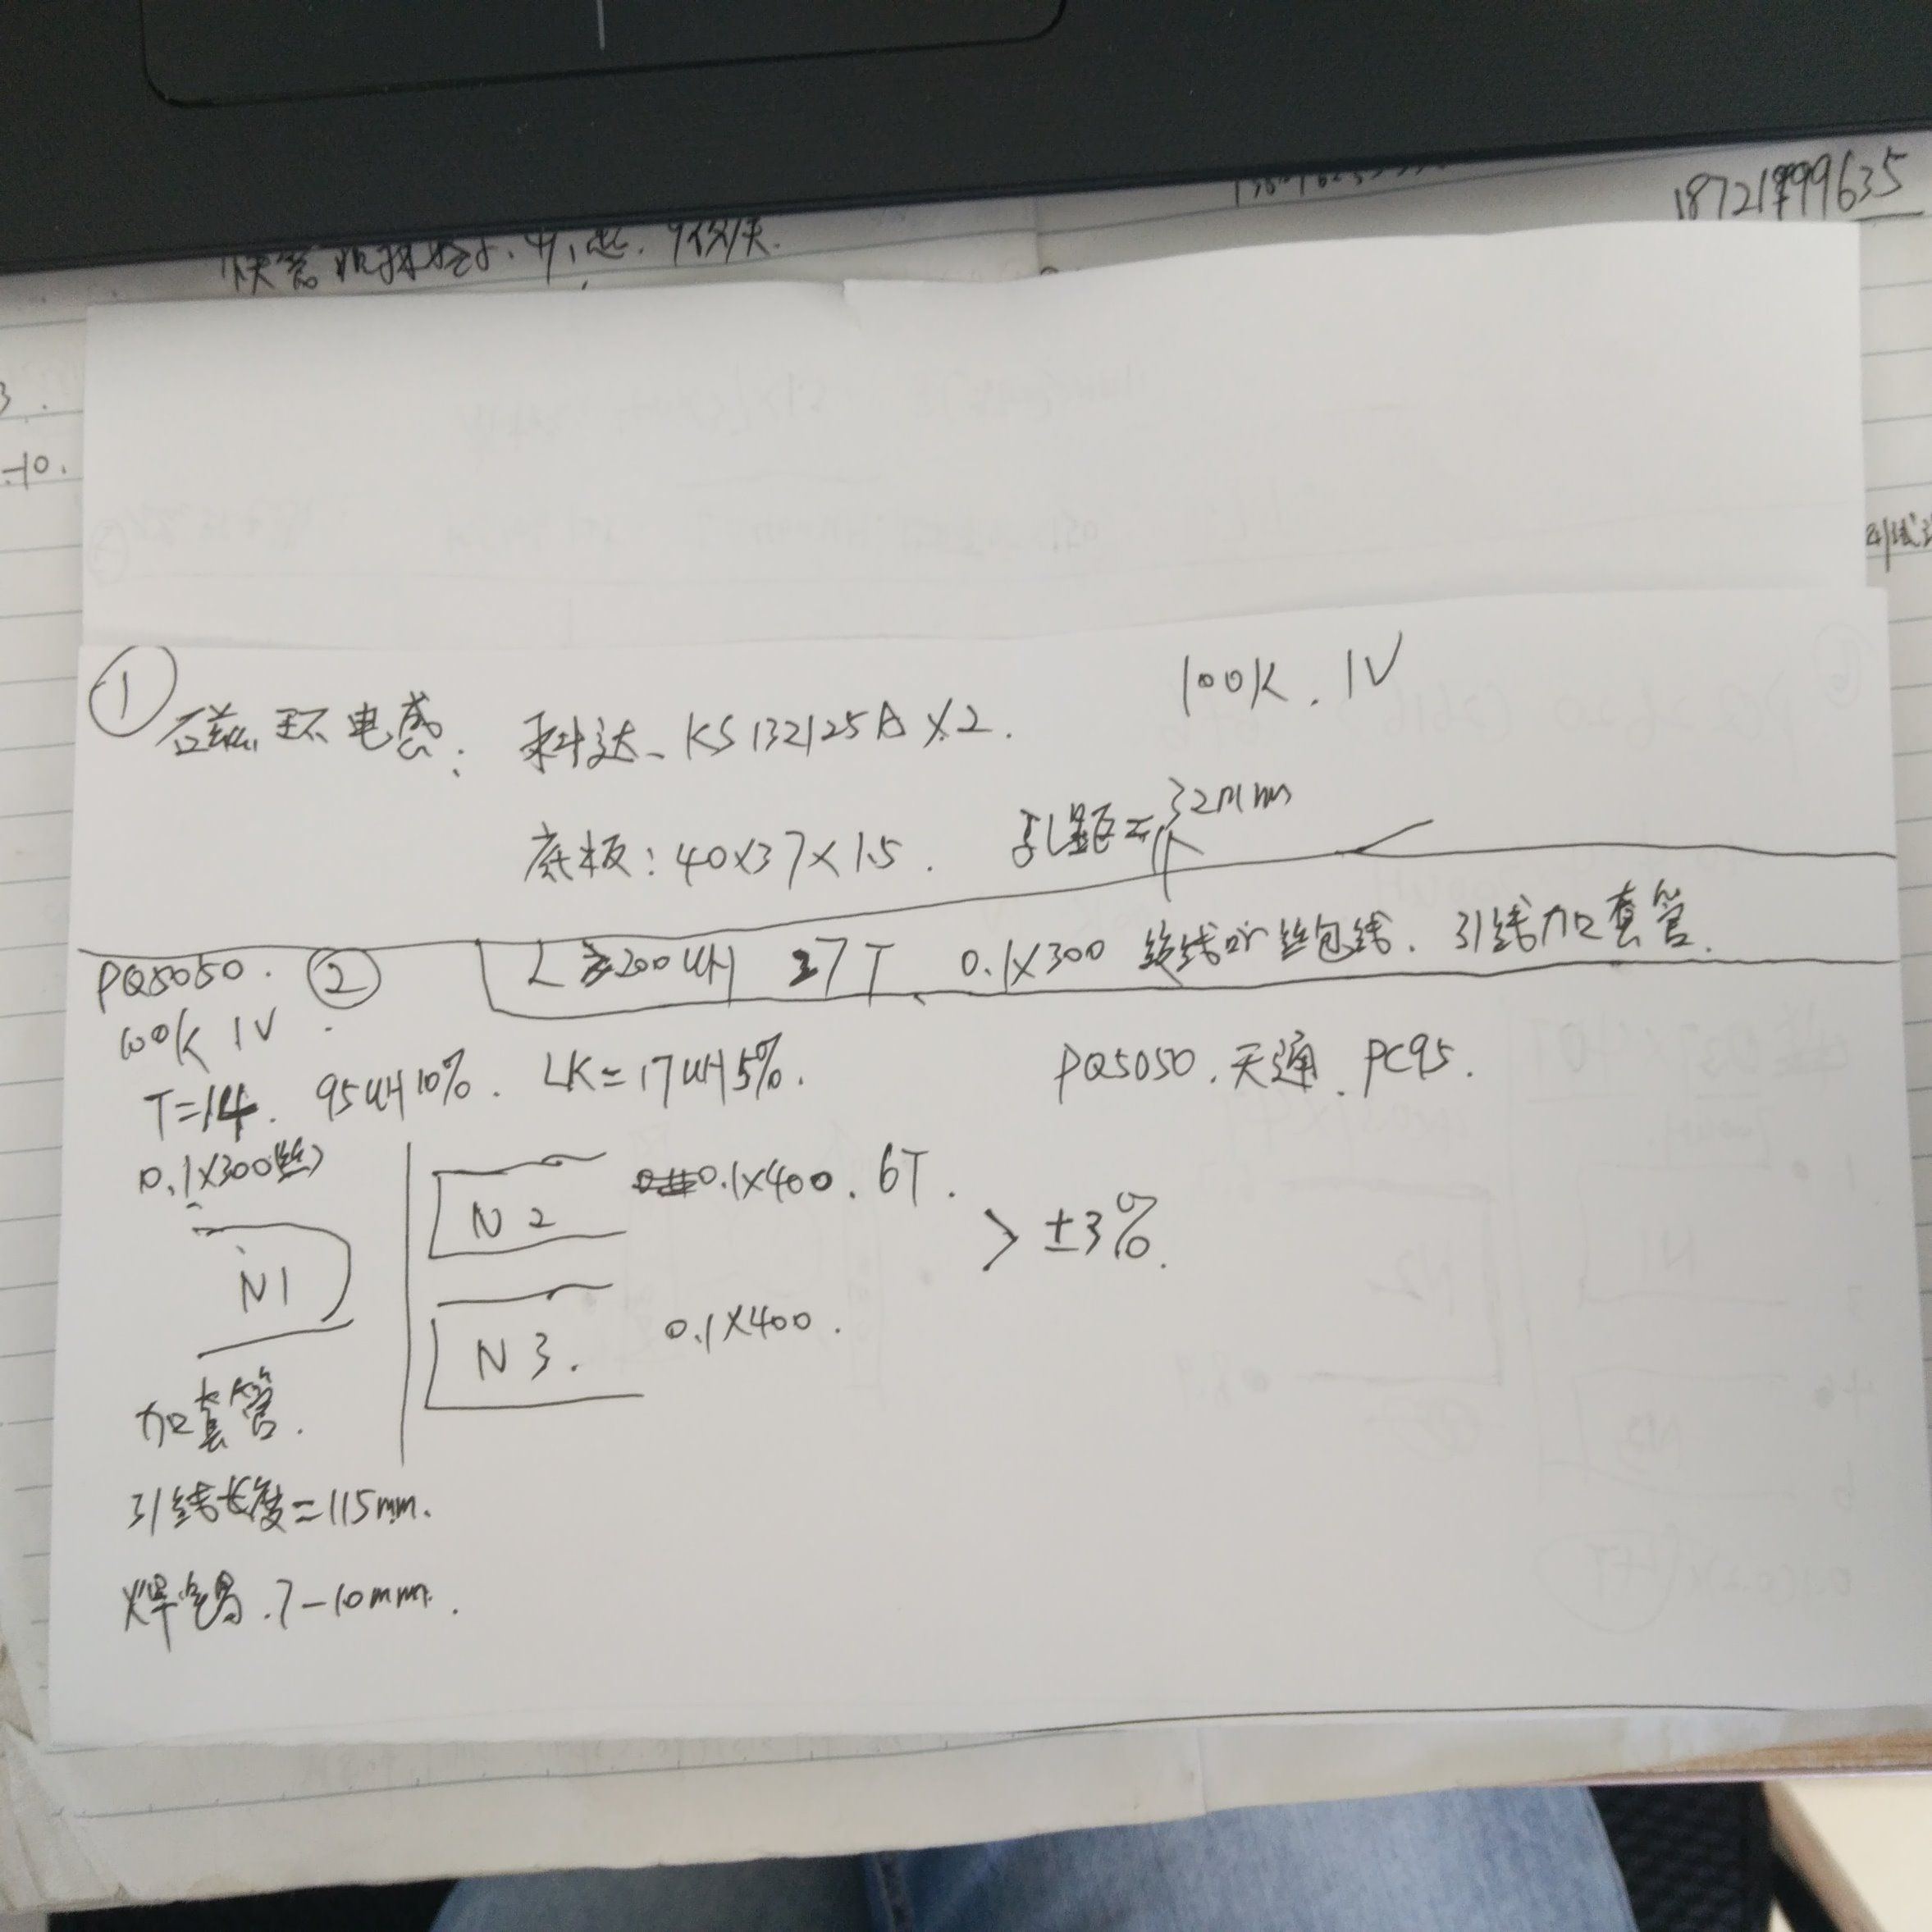 18721999635
-10.
① 磁环电感: 科达-KS132125A×2. 100K. 1V
底板: 40×37×1.5. 孔距=32mm
L≥200uH 27T 0.1×300 绞线or丝包线. 引线加套管.
PQ5050. ②
100K 1V
T=14. 95uH 10%. LK=17uH 5%. PQ5050. 天通. PC95.
0.1×300(丝)
N1
N2 0.1×400. 6T.
> ±3%.
N3. 0.1×400.
加套管.
引线长度=115mm.
焊锡. 7-10mm.